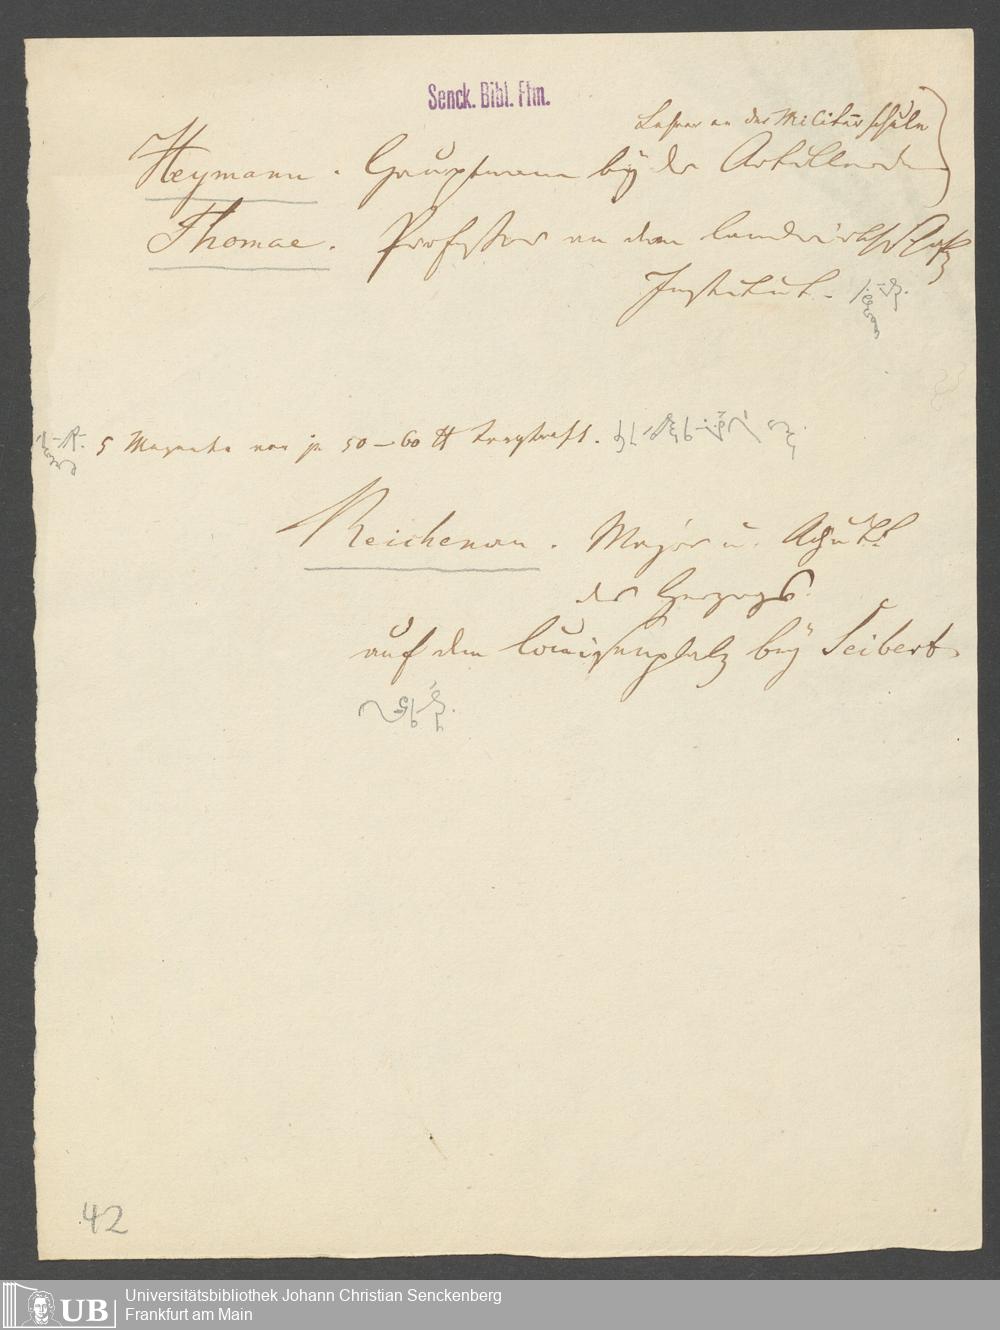 Senck. Bibl. Ffm.
Lehrer an der Militärschule
Heymann. Hauptmann bey der Artillerie
Thomae. Professor an dem landwirthschftl
Institut.
5 Magnete von je 50–60 ℔ Tragkraft.
Reichenau. Major u. Adjut.
des Herzogs
auf dem Louisenplatz bey Seibert
42
UB
Universitätsbibliothek Johann Christian Senckenberg
Frankfurt am Main